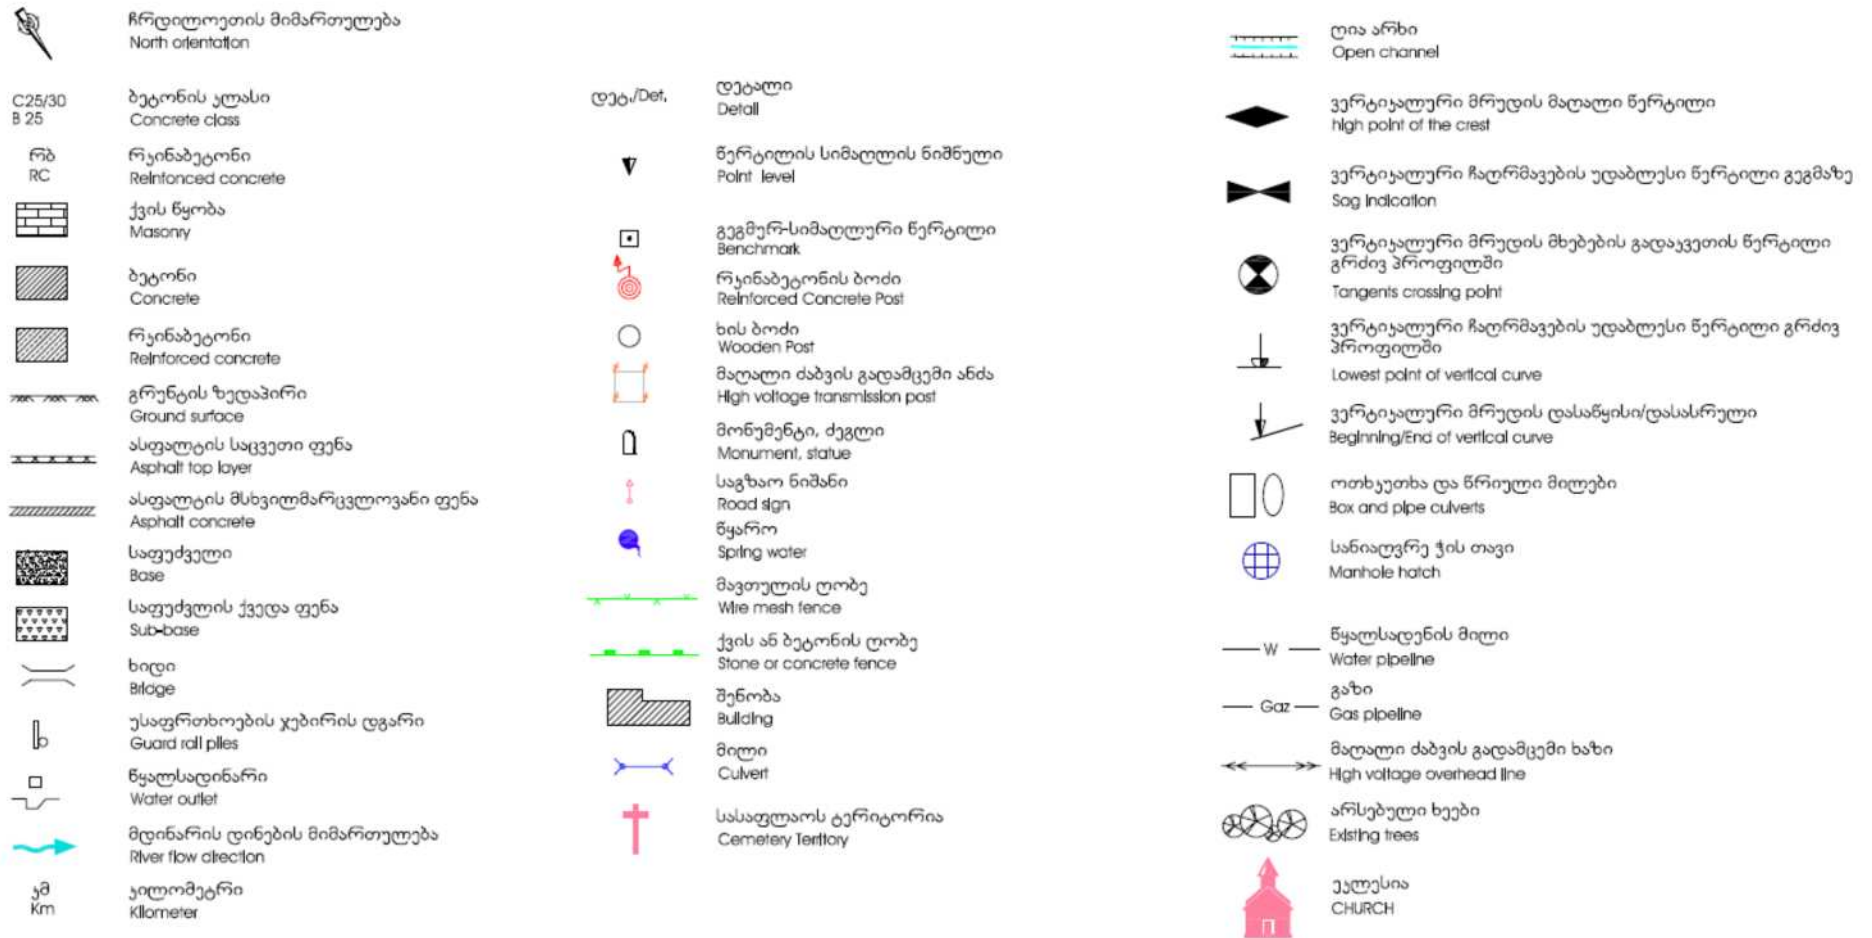 ჩრდილოეთის მიმართულება
North orientation
C25/30
B 25
ბეტონის კლასი
Concrete class
რბ
RC
რკინაბეტონი
Reinfonced concrete
ქვის წყობა
Masonry
ბეტონი
Concrete
რკინაბეტონი
Reinforced concrete
გრუნტის ზედაპირი
Ground surface
ასფალტის საცვეთი ფენა
Asphalt top layer
ასფალტის მსხვილმარცვლოვანი ფენა
Asphalt concrete
საფუძველი
Base
საფუძვლის ქვედა ფენა
Sub-base
ხიდი
Bridge
უსაფრთხოების ჯებირის დგარი
Guard rail piles
წყალსადინარი
Water outlet
მდინარის დინების მიმართულება
River flow direction
კმ
Km
კილომეტრი
Kilometer
დეტ./Det.
დეტალი
Detail
წერტილის სიმაღლის ნიშნული
Point level
გეგმურ-სიმაღლური წერტილი
Benchmark
რკინაბეტონის ბოძი
Reinforced Concrete Post
ხის ბოძი
Wooden Post
მაღალი ძაბვის გადამცემი ანძა
High voltage transmission post
მონუმენტი, ძეგლი
Monument, statue
საგზაო ნიშანი
Road sign
წყარო
Spring water
მავთულის ღობე
Wire mesh fence
ქვის ან ბეტონის ღობე
Stone or concrete fence
შენობა
Building
მილი
Culvert
სასაფლაოს ტერიტორია
Cemetery Territory
ღია არხი
Open channel
ვერტიკალური მრუდის მაღალი წერტილი
high point of the crest
ვერტიკალური ჩაღრმავების უდაბლესი წერტილი გეგმაზე
Sag indication
ვერტიკალური მრუდის მხებების გადაკვეთის წერტილი
გრძივ პროფილში
Tangents crossing point
ვერტიკალური ჩაღრმავების უდაბლესი წერტილი გრძივ
პროფილში
Lowest point of vertical curve
ვერტიკალური მრუდის დასაწყისი/დასასრული
Beginning/End of vertical curve
ოთხკუთხა და წრიული მილები
Box and pipe culverts
სანიაღვრე ჭის თავი
Manhole hatch
W
წყალსადენის მილი
Water pipeline
Gaz
გაზი
Gas pipeline
მაღალი ძაბვის გადამცემი ხაზი
High voltage overhead line
არსებული ხეები
Existing trees
ეკლესია
CHURCH